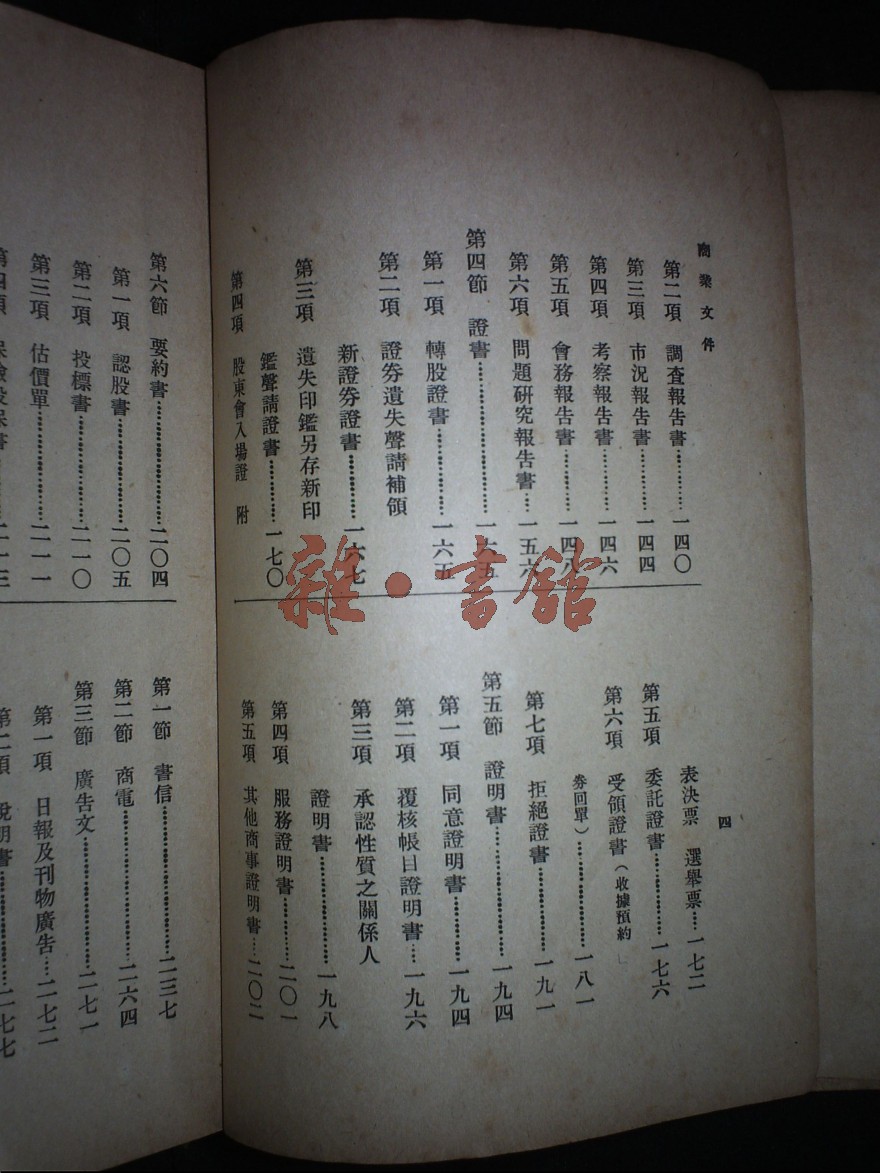 商業文件
第二項 調查報告書…………一四〇
第三項 市況報告書…………一四四
第四項 考察報告書…………一四六
第五項 會務報告書…………一四八
第六項 問題研究報告書……一五六
第四節 證書…………………一六五
第一項 轉股證書……………一六五
第二項 證券遺失聲請補領
新證券證書…………一六七
第三項 遺失印鑑另存新印
鑑聲請證書…………一七〇
第四項 股東會入場證 附
四
表決票 選舉票……一七二
第五項 委託證書……………一七六
第六項 受領證書(收據預約
券回單)……………一八一
第七項 拒絕證書……………一九一
第五節 證明書………………一九四
第一項 同意證明書…………一九四
第二項 覆核帳目證明書……一九六
第三項 承認性質之關係人
證明書………………一九八
第四項 服務證明書…………二〇一
第五項 其他商事證明書……二〇二
第六節 要約書………………二〇四
第一項 認股書………………二〇五
第二項 投標書………………二一〇
第三項 估價單………………二一一
第四項 保險投保書…………二一三
第一節 書信…………………二三七
第二節 商電…………………二六四
第三節 廣告文………………二七一
第一項 日報及刊物廣告……二七二
第二項 說明書………………二七七
雜·書館